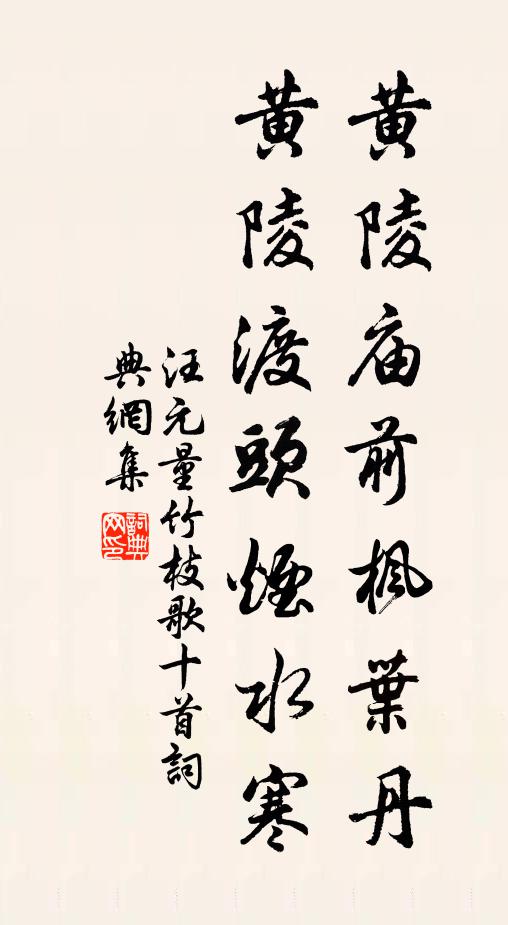 黄陵庙前楓葉丹
黄陵渡頭煙水寒
汪元量竹枝歌十首詞
典網集
詞典
网印